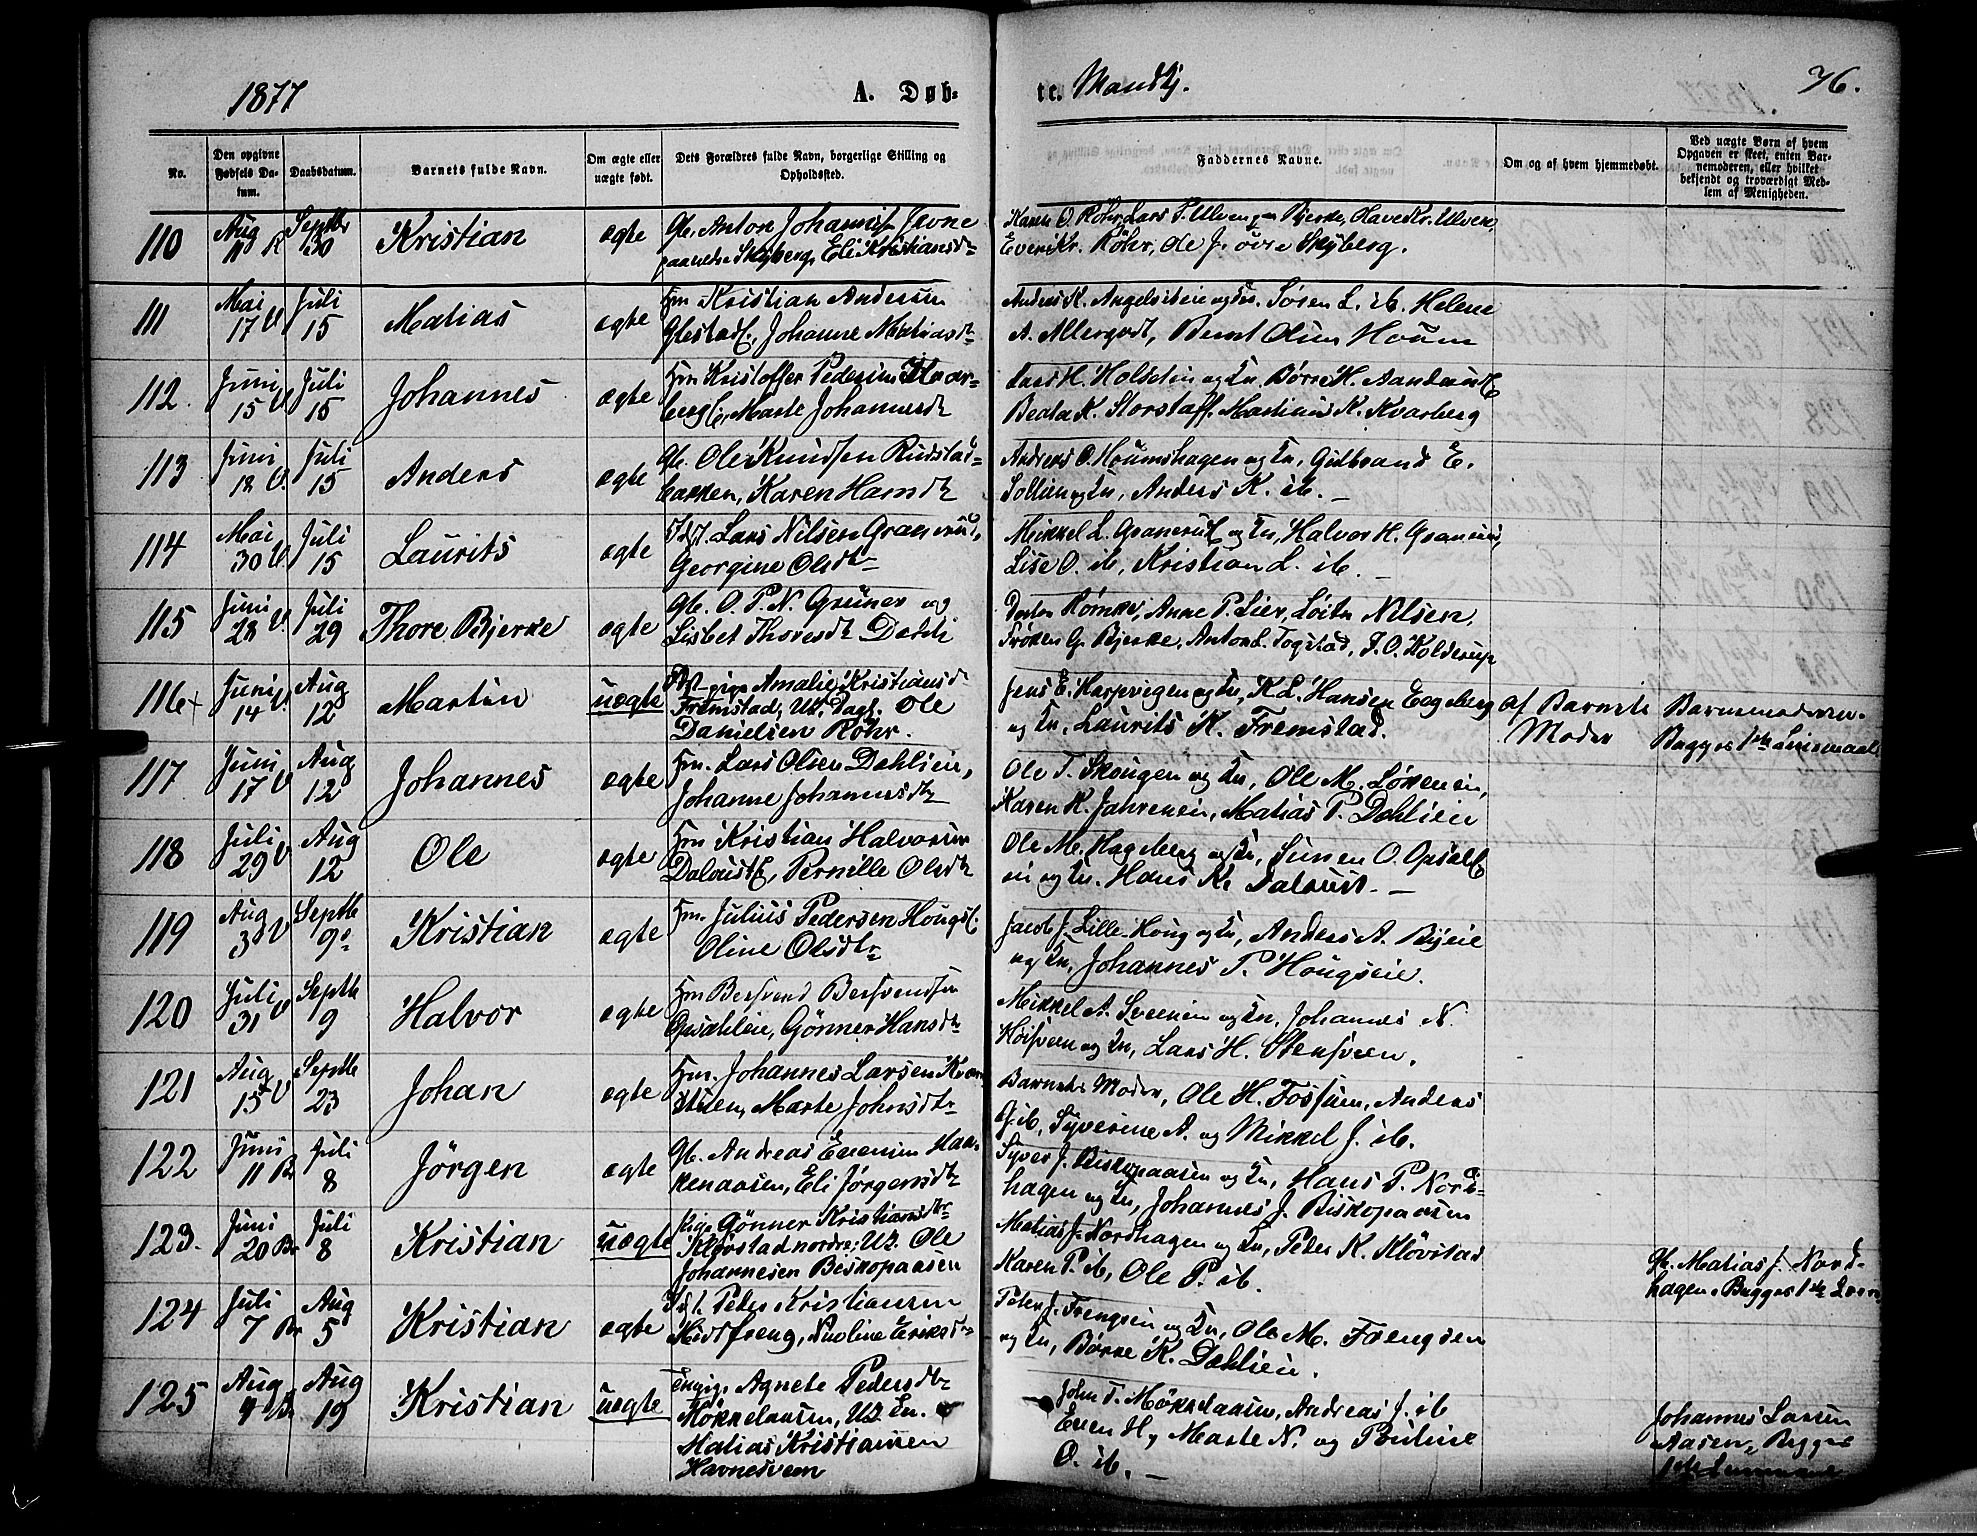 1877
A. Døb-
te. Mandkj.
76.
No.
Den opgivne Fødsels Datum.
Daabsdatum.
Barnets fulde Navn.
Om ægte eller uægte født.
Dets Forældres fulde Navn, borgerlige Stilling og Opholdssted.
Faddernes Navne.
Om og af hvem hjemmedøbt.
Ved uægte Børn af hvem Opgaven er skeet, enten Barnemoderen, eller hvilket bekjendt og troværdigt Medlem af Menigheden.
110 Aug Septbr 30 Kristian ægte Gb. Anton Johannes. Jevne
Skyberg, Eli Kristiansdtr
Karen O. Røhr, Lars P. Ulven, Bjerke, Olave Kr. Ulven,
Even Kr. Røhr, Ole J. øvre Skyberg.
111 Mai 17 V Juli 15 Matias ægte Hm Kristian Andersen
Glestade, Johanne Matiasdtr
Anders K. Angelstueie og Kn. Søren L. ib. Helene
A. Allergodt, Bernt Olsen Houm
112. Juni 15 V Juli 15 Johannes ægte Hm Kristoffer Pedersen Kvar-
berge, Marte Johannesdtr
Lars H. Holstein og Kn. Børre H.
Beata K. Storstaff. Martinus K. Kvarberg
113 Juni 12 V. Juli 15 Anders ægte Gb. Ole Knudsen Rudstad-
bakken, Karen Hansdtr
Andreas O. Houmshagen og Kn, Gulbrand E.
Sollien og Kn, Anders K. ib. –
114 Mai 30 V. Juli 15 Laurits ægte Lars Nilsen Granerud,
Georgine Olsdtr
Mikkel L. Granerud og Kn, Halvor H. Granerud,
Lise O. ib, Kristian L. ib. –
115 Juni 28 V. Juli 29 Thore Bjerke ægte Gb. O. P. N. Grüner og
Lisbet Thoresdtr Dehli
Rømcke, Anne P. Lier, Løitn Nilsen,
Frøken G. Bjerke, Anton L. Togstad, J. O. Kolderup
116+ Juni 14 V. Aug 12 Martin uægte pige Amalie Kristiansd
Fremstad, Ut. Dagl. Ole
Danielsen Røhr.
Jens E. Harpvigen og Kn, K. L. Hansen Eegeberg
og Kn, Laurits K. Fremstad.
af Barnets
Moder
Barnemoderen.
Begges 1ste Leiermaal
117 Juni 17 V Aug 12 Johannes ægte Hm. Lars Olsen Dahlien,
Johanne Johannesdtr
Ole T. Skougen og Kn, Ole M. Løkeneie,
Karen K. Jahreneie, Matias P. Dahlien
118 Juli 29 V Aug 12 Ole ægte Hm Kristian Halvorsen
Dalbuste, Pernille Olsdtr
Ole M. Hageberg og Kn, Simen O. Opsal-
eie og Kn. Hans K. –
119 Aug 3 V Septb 9 Kristian ægte Hm. Julius Pedersen Hougse.
Oline Olsdtr
Jacob J. Lille-Houg og Kn, Anders A. Byeie
og Kn, Johannes P. Hougseie.
120 Juli 31 V Septb 9 Halvor ægte Hm Bersvend Bersvendsen
Gønner Hansdtr
Mikkel A. Sveeneie og Kn, Johannes N.
Høisveen og Kn, Lars H. Stensveen.
121 Aug 15 V Septb 23 Johan ægte Hm. Johannes Larsen
Marte Johnsdtr
Barnets Moder, Ole H. Fossum, Anders
G. ib, Syverine A. og Mikkel J. ib.
122 Juni 11 Br Juli 8 Jörgen ægte Gb. Andreas Evensen Haa-
kenaasen, Eli Jørgensdtr
Syver J. Biskopaasen og Kn, Hans P. Nord-
hagen og Kn, Johannes J. Biskopaasen
123. Juni 20 Br Juli 8 Kristian uægte Pige Gønner Kristiansdtr
Kløvstad nordre; Ut. Ole
Johannesen Biskopaasen
Matias J. Nordhagen og Kn, Peder K. Kløvstad
Karen P. ib, Ole P. ib.
Gb. Matias J. Nord-
hagen. Begges 1ste
124 Juli 7 Br Aug 5 Kristian ægte Peter Kristiansen
Midtfreng, Nicoline Eriksdtr
Peter J. Frengseie og Kn, Ole M. Frengseie
og Kn, Børre K. Dahlien.
125 Aug 4 Br Aug 19 Kristian uægte Agnete Pedersdtr
Møkkelaasen, Ut. En.
Matias Kristiansen
Havnesveen
John T. Møkkelaasen, Andreas J. ib
Even H., Marte N. og Pauline
O. ib. –
Johannes Larsen
Aasen, Begges